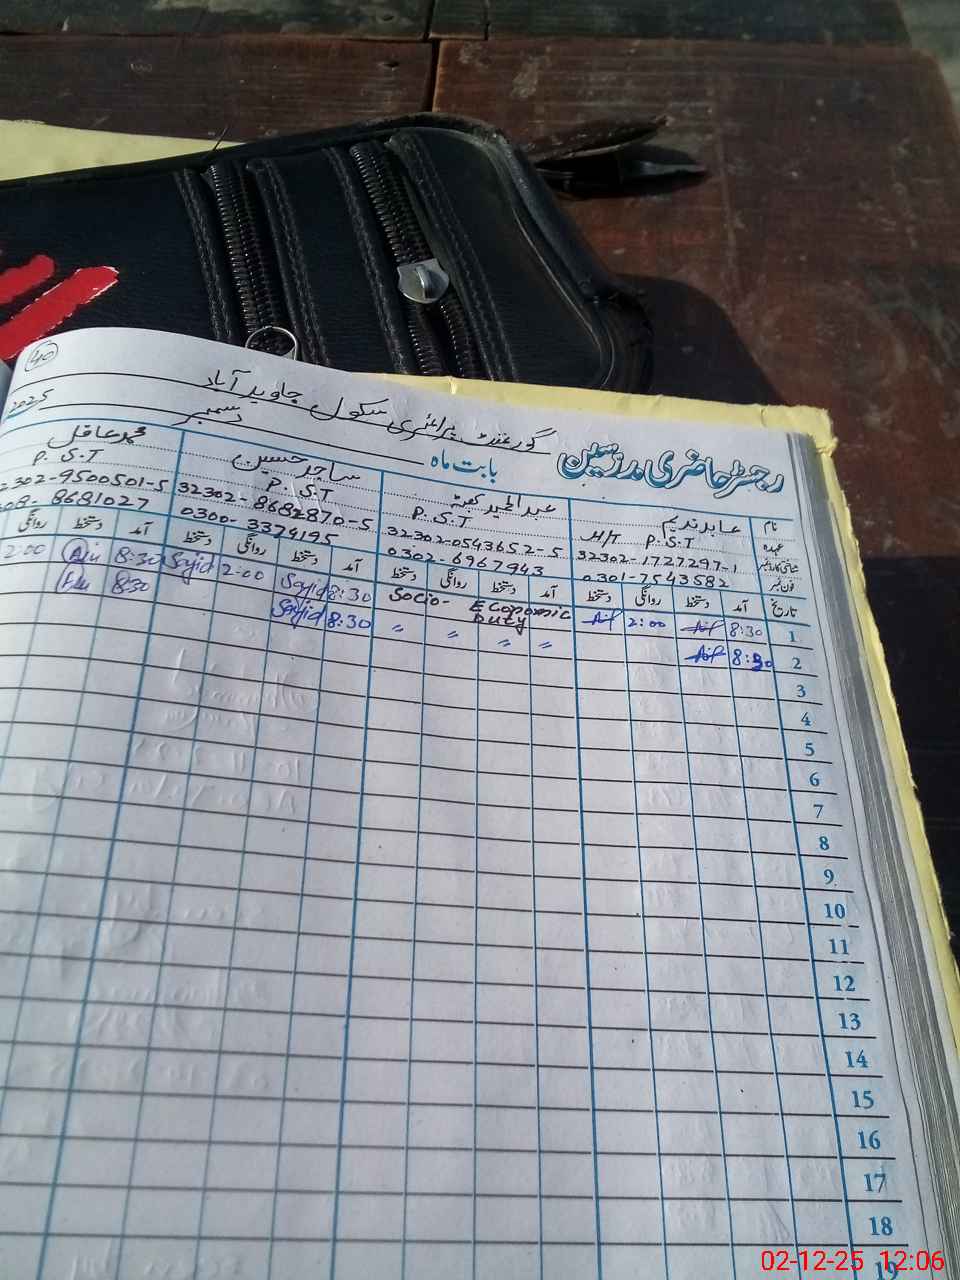 40
گورنمنٹ پرائمری سکول جاوید آباد
رجسٹر حاضری مدرسین بابت ماہ دسمبر 2025
نام عابد ندیم عبدالحمید ساجد حسین محمد عاقل
عہدہ H/T P.S.T P.S.T P.S.T P.S.T
شناختی کارڈ نمبر 32302-1727297-1 32302-0543652-5 32302-8682870-5 2302-9500501-5
فون نمبر 0301-7543582 0302-6967943 0300-3379195 08-8681027
تاریخ آمد دستخط روانگی دستخط آمد دستخط روانگی دستخط آمد دستخط روانگی دستخط آمد دستخط روانگی
1 8:30 2:00 Socio-Economic Duty 8:30 Sajid 2:00 Sajid 8:30 2:00
2 8:30 " " " " 8:30 Sajid 8:30
3
4
5
6
7
8
9
10
11
12
13
14
15
16
17
18
19
02-12-25 12:06